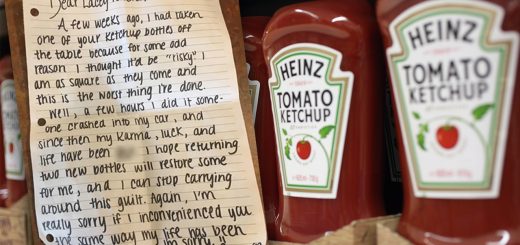 Dear Lacey
A few weeks ago, I had taken
one of your ketchup bottles off
the table because for some odd
reason I thought it'd be "risky" I
am as square as they come and
this is the worst thing I've done.
Well, a few hours I did it some-
one crashed into my car, and
since then my karma, luck, and
life have been
I hope returning
two new bottles will restore some
for me, and I can stop carrying
around this guilt. Again, I'm
really sorry if I inconvenienced you
the same way my life has been
I'm sorry
HEINZ
TOMATO
KETCHUP
HEINZ
TOMATO
KETCHUP